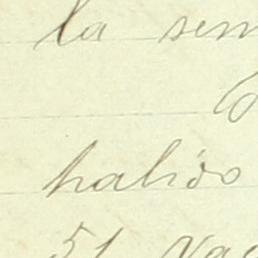 la sem
habido
51 Vac